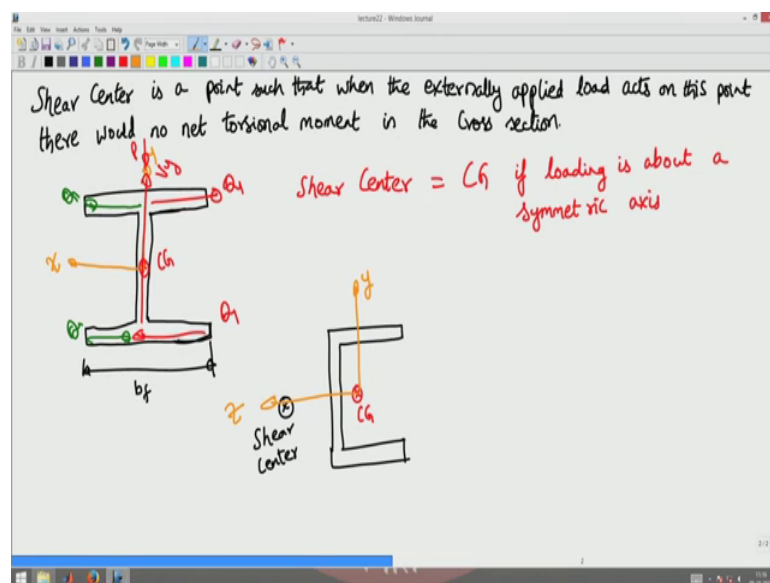 lecture22 - Windows Journal
File Edit View Insert Actions Tools Help
Page Width
Shear Center is a point such that when the externally applied load acts on this point
there would no net torsional moment in the Cross section.
P
y
Vy
Shear Center = CG if loading is about a
symmetric axis
CG
bf
y
z
CG
Shear
Center
2 / 2
2